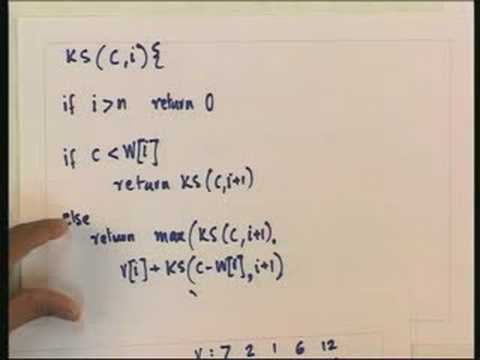 KS(C,i){
if i>n return 0
if C < W[i]
return KS(C,i+1)
else
return max(KS(C,i+1),
V[i]+KS(C-W[i],i+1)
V: 7 2 1 6 12